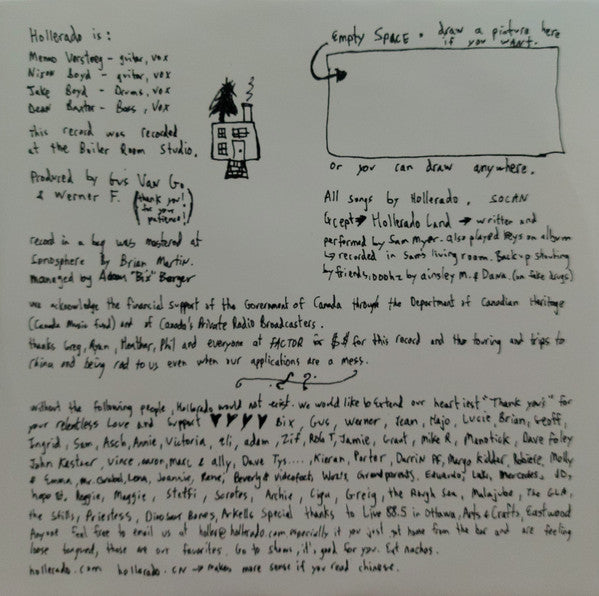 Hollerado is:
Menno Versteeg - guitar, vox
Nixon Boyd - guitar, vox
Jake Boyd - Drums, vox
Dean Baxter - Bass, vox
this record was recorded
at the Boiler Room Studio.
Produced by Gus Van Go
& Werner F. (thank you! for your patience!)
record in a bag was mastered at
Lonosphere by Brian Martin.
managed by Adam "Bix" Berger
Empty Space. draw a picture here
if you want.
or you can draw anywhere.
All songs by Hollerado, SOCAN
Except → Hollerado Land → written and
performed by Sam Myer. also played keys on album
↳ recorded in Sam's living room. Back-up shouting
by friends. ooohz by ainsley M. & Dana. (on fake drugs)
we acknowledge the financial support of the Government of Canada through the Department of Canadian Heritage
(Canada Music Fund) and of Canada's Private Radio Broadcasters.
thanks Greg, Ryan, Heather, Phil and everyone at FACTOR for $$ for this record and the touring and trips to
china and being rad to us even when our applications are a mess.
without the following people, Hollerado would not exist. we would like to Extend our heartiest "Thank yous" for
your relentless Love and Support ♥ ♥ ♥ ♥ Bix, Gus, Werner, Jean, Majo, Lucie, Brian, Geoff,
Ingrid, Sam, Asch, Annie, Victoria, eli, adam, Zif, Rob T, Jamie, Grant, Mike R, Manotick, Dave Foley
John Kastner, Vince, aaron, marc & ally, Dave Tys...., Kieran, Porter, Darrin PF, Margo Kidder, Molly
& Emma, mr. Lena, Joannie, René, Beverly & videofacts, Grandparents, Eduardo, Mercedes, JD,
Reggie, Maggie, Steffi, Sorotos, Archie, Greig, the Rough Sea, Malajube, The GLA,
the Stills, Priestess, Dinosaur Bones, Arkells Special thanks to Live 88.5 in Ottawa, Arts & Crafts, Eastwood
Anyone feel free to email us at holler@hollerado.com especially if you just got home from the bar and are feeling
loose tongued, those are our favorites. Go to shows, it's good for you. Eat nachos.
hollerado.com hollerado.cn → makes more sense if you read chinese.